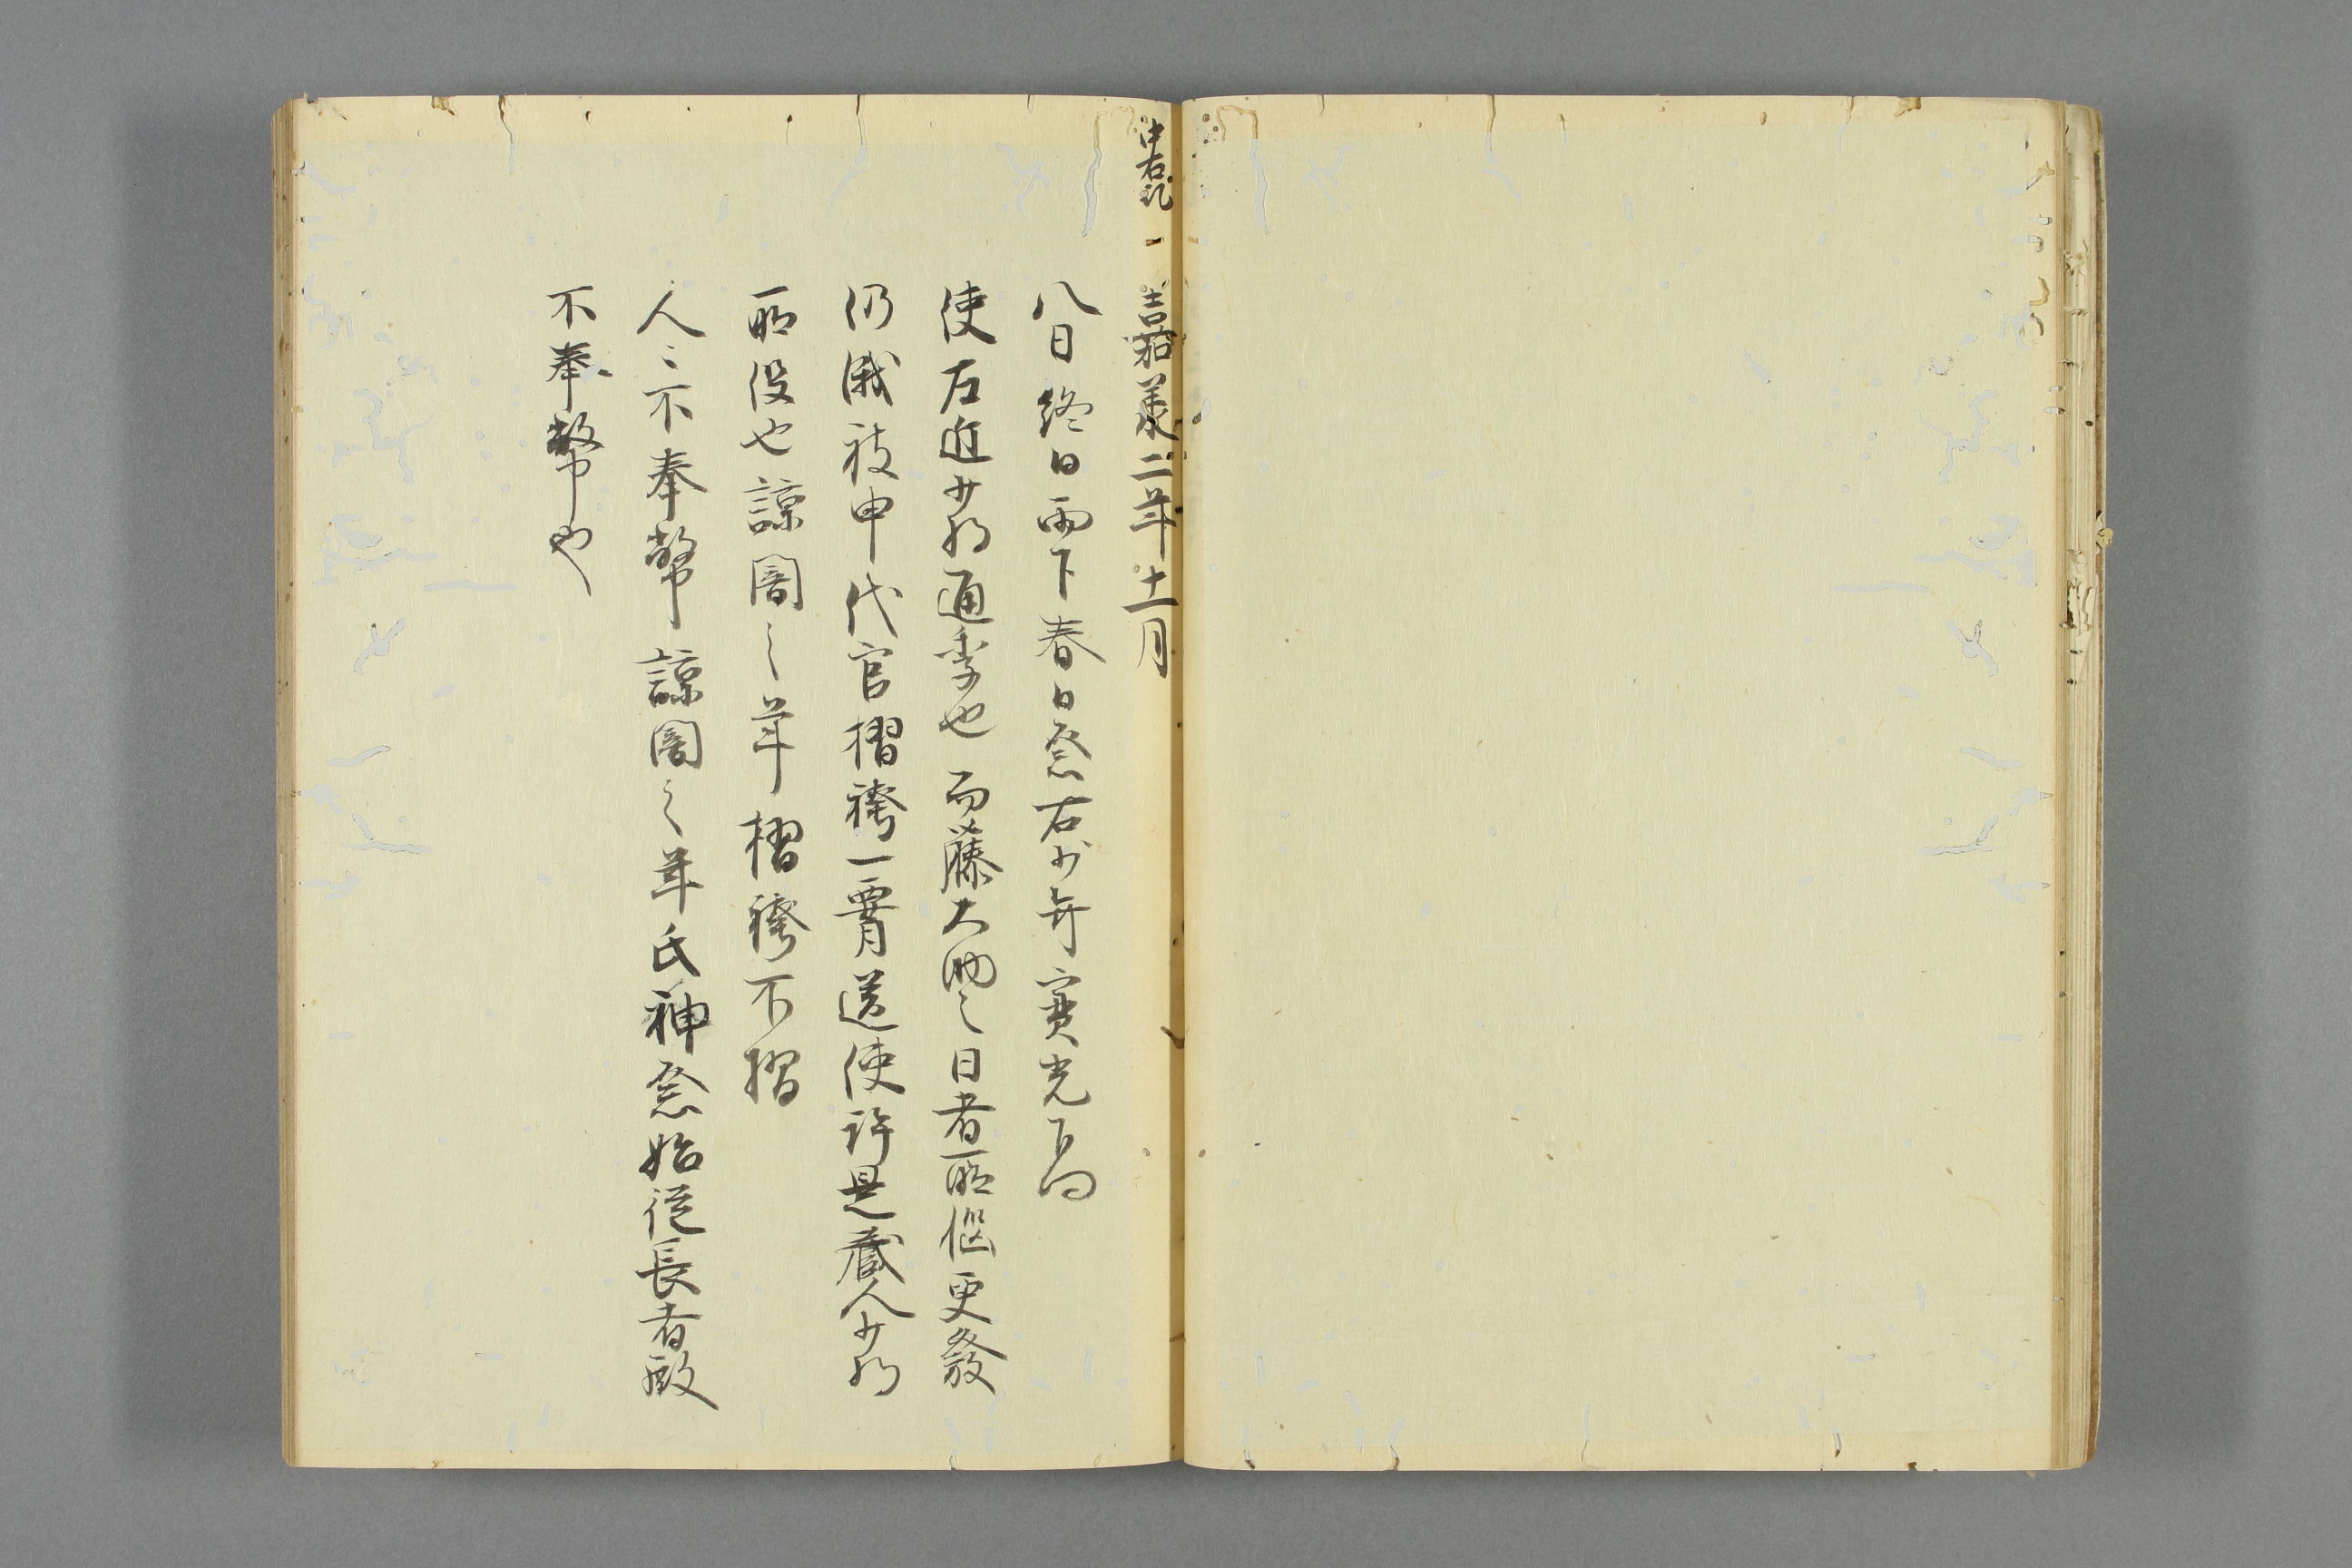 中右記
一 嘉承二年十一月
八日終日雨下春日祭右少弁實光下向
使左近少将通季也而藤大納言日者所悩更發
仍俄被申代官摺袴一腰送使許是蔵人少将
所役也諒闇之年摺袴不摺
人々不奉幣諒闇之年氏神祭始従長者殿
不奉幣也